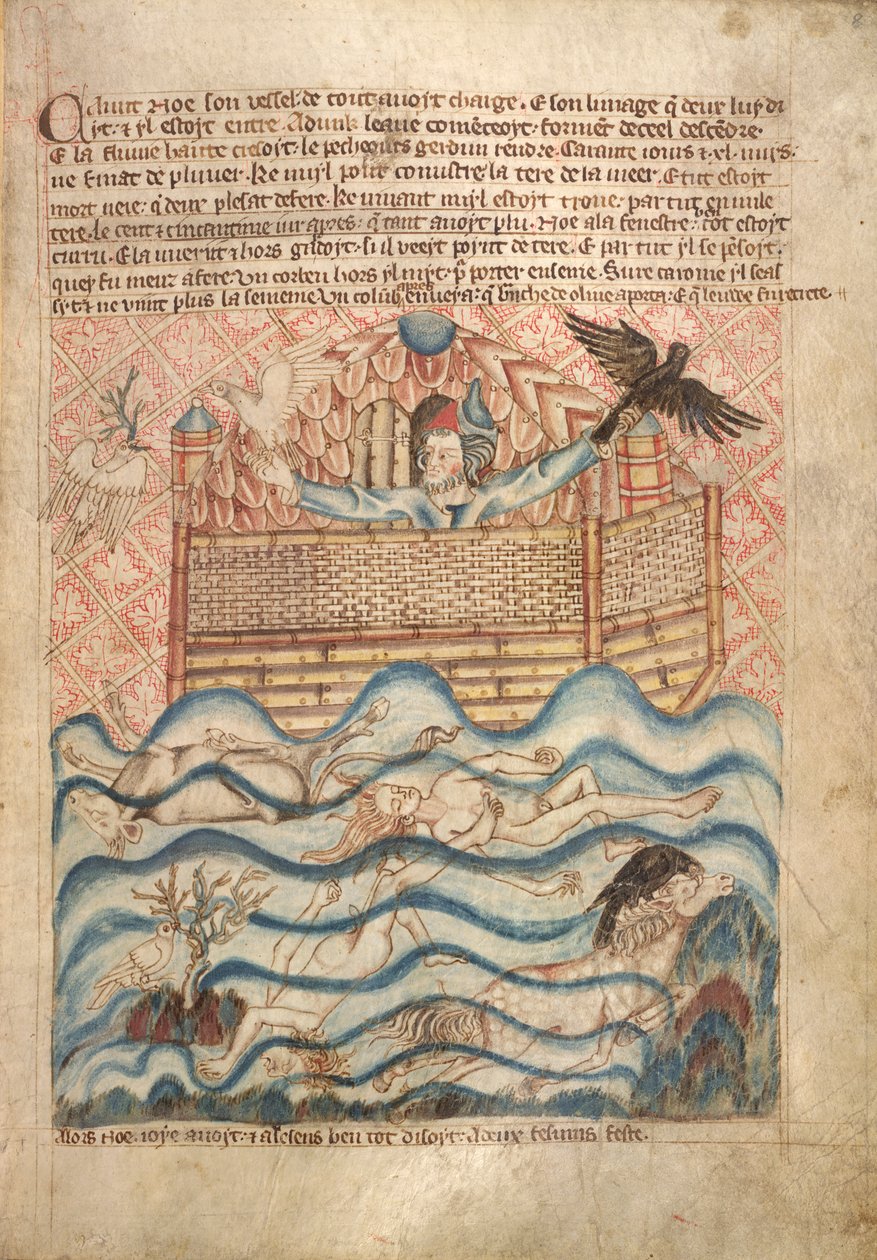 Qaunt Noe son vessel: de tout auoyt charge. E son linnage q̃ deux luy di
yt: ⁊ yl estoyt entre. Adunk leaue comẽceoyt: forment de ceel descẽdre.
E la fluuie haute cresoyt: le pechours gerdun rendre. Carante iours ⁊ .xl. nuys:
ne finat de pluuer. Ke nuyl pout conustre: la tere de la meer. E tut estoyt
mort ueie: q̃ deux plesat de fere. Ke uiuant nuyl estoyt troue: par tut en nule
tere. le cent ⁊ cincantime iur apres: q̃ tant auoyt plu. Noe a la fenestre: q̃ tot estoyt
curru. E la uuerut ⁊ hors gardoyt: si il veeyt poynt de tere. E par tut yl se p̃soyt:
quey fu meuz a fere: Un corbeu hors yl myt: p̃ porter ensenie. Sure caronie yl seas
syt: ⁊ ne vint plus la semeine. Un colũb apres enueya: q̃ brãche de oliue aporta: E q̃ leuwe fu retrete.
Alors Noe. ioye auoyt: ⁊ a lesens ben tot disoyt: A deux fesums feste.
8